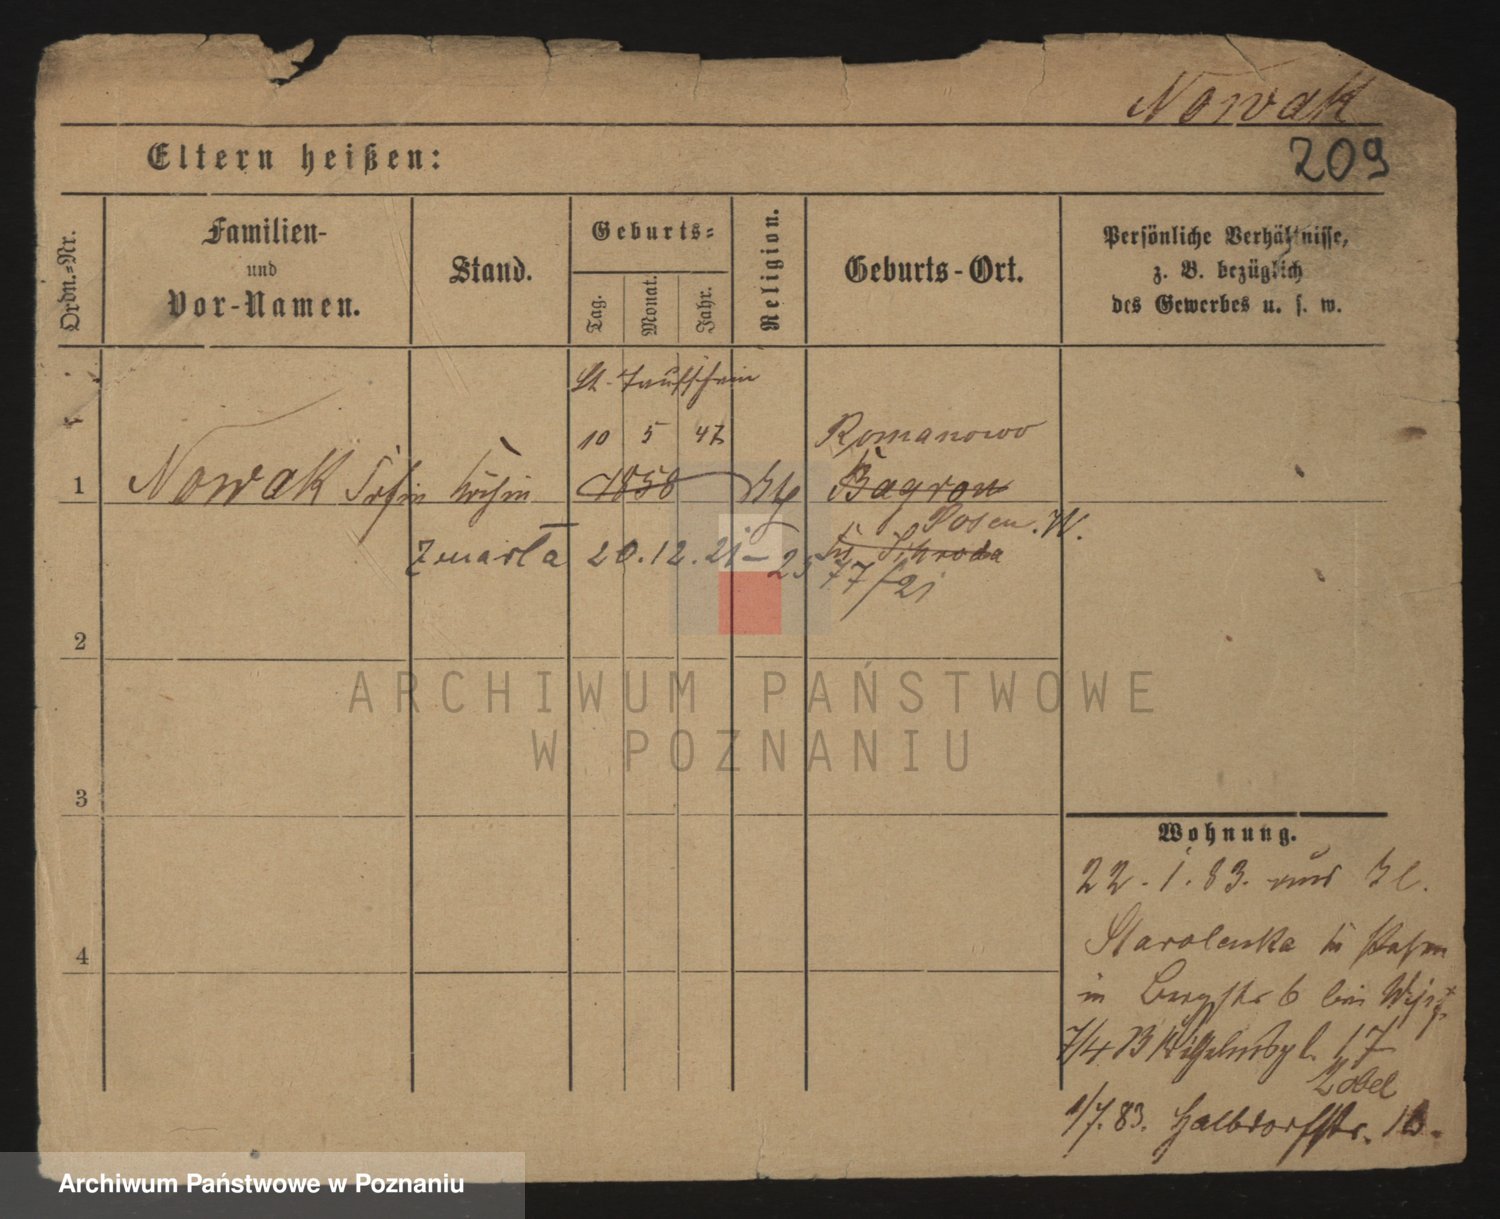 Nowak
209
Eltern heißen:
Ordn.=Nr.
Familien-
und
Vor-Namen.
Stand.
Geburts=
Tag.
Monat.
Jahr.
Religion.
Geburts-Ort.
Persönliche Verhältnisse,
z. B. bezüglich
des Gewerbes u. s. w.
lt. Taufschein
10 5 47
Romanowo
1
Nowak
Köchin
1858
Bagrow
Posen. W.
Zmarła 20.12.21
Schroda
77/21
2
ARCHIWUM PAŃSTWOWE
W POZNANIU
3
Wohnung.
22. 1. 83. aus Kl.
Starolenka
in Bergstr 6 bei
7/4 83 Wilhelmspl. 17
Zobel
1/7. 83. Halbdorfstr. 16.
4
Archiwum Państwowe w Poznaniu